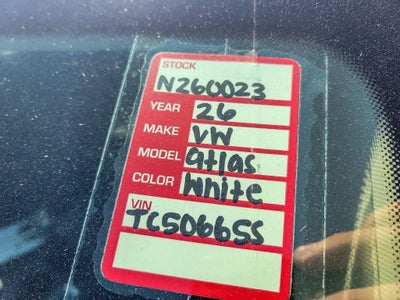 STOCK
N260023
YEAR 26
MAKE VW
MODEL atlas
COLOR White
VIN
TC506655